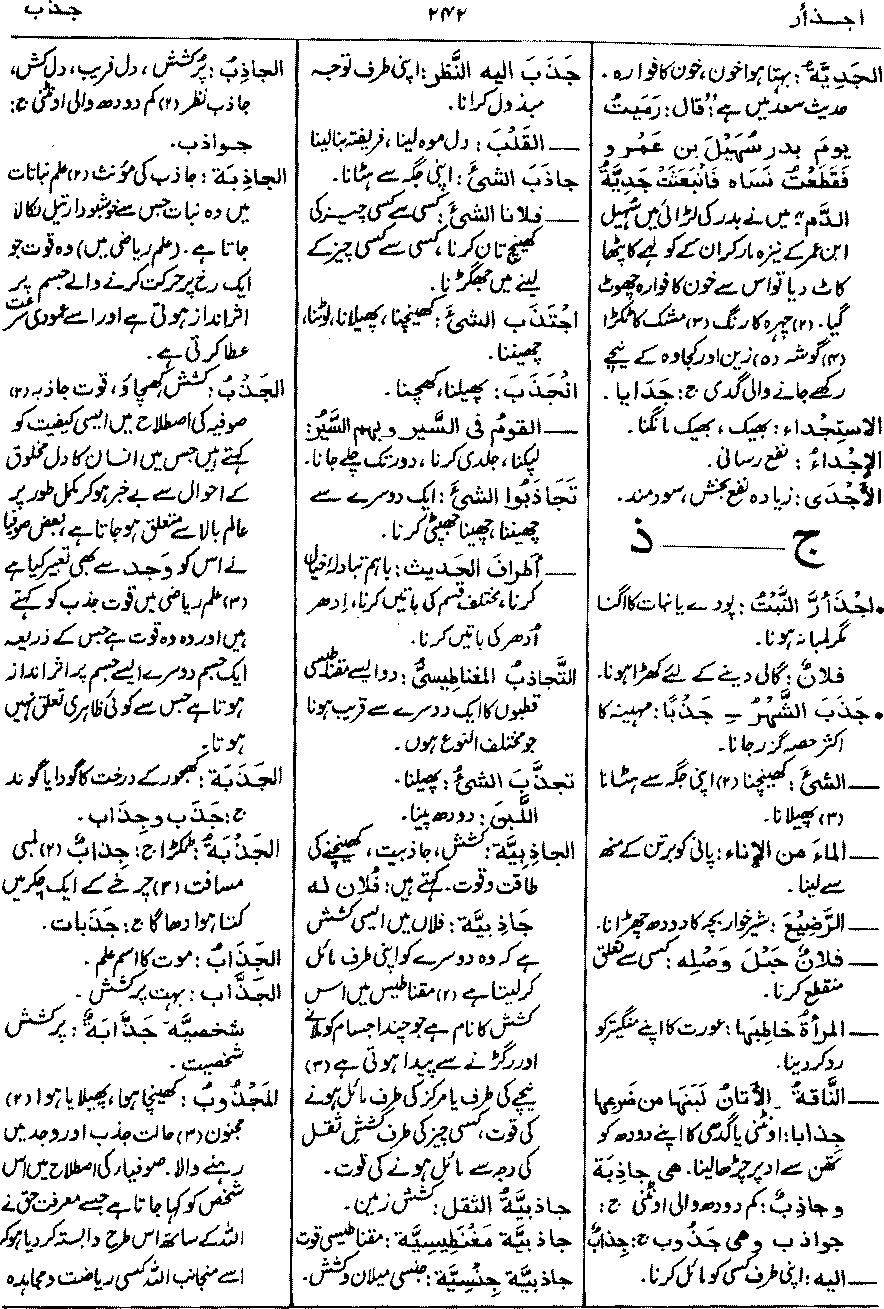 اجذأر ۲۴۲ جذب
الجَدِيَّة: بہتا ہوا خون، خون کا فوارہ.
حدیث سعد میں ہے: "قال: رَمَيتُ
يومَ بدر سُهَيْلَ بن عَمْرو و
فَقَطَعْتُ نَسَاه فَانْبَعَثَتْ جَدِيَّةُ
الدَّم" میں نے بدر کی لڑائی میں سہیل
ابن عمر کے نیزہ مار کر ان کے کولہے کا پٹھا
کاٹ دیا تو اس سے خون کا فوارہ چھوٹ
گیا. (۲) چہرہ کا رنگ (۳) مشک کا ٹکڑا
(۴) گوشہ (۵) زین اور کجاوہ کے نیچے
رکھے جانے والی گدی ج: جَدَایا.
الاستِجْداء: بھیک، بھیک مانگنا.
الإجْداءُ: نفع رسانی.
الأجْدَى: زیادہ نفع بخش، سود مند.
ج ــــ ذ
• اجْذَأرَّ النَّبْتُ: پودے یا نبات کا اگنا
مگر لمبا نہ ہونا.
فلانٌ: گالی دینے کے لئے کھڑا ہونا.
• جَذَبَ الشَّهْرُ ــِ جَذْبًا: مہینہ کا
اکثر حصہ گزر جانا.
ــــ الشئَ: کھینچنا (۲) اپنی جگہ سے ہٹانا
(۳) پھیلانا.
ــــ الماءَ من الإناء: پانی کو برتن کے منھ
سے لینا.
ــــ الرَّضِيْعَ: شیر خوار بچہ کا دودھ چھڑانا.
ــــ فلانٌ حَبْلَ وَصْلِه: کسی سے تعلق
منقطع کرنا.
ــــ المرأةُ خاطِبَها: عورت کا اپنے منگیتر کو
رد کر دینا.
ــــ النَّاقةُ ــِ الأتانُ لَبَنَها من ضَرعِها
جِذابا: اونٹنی یا گدھی کا اپنے دودھ کو
تھن سے اوپر چڑھا لینا. هی جاذِبة
و جاذِبٌ: کم دودھ والی اونٹنی ج:
جواذب وهی جَذُوب ج: جِذابٌ
ــــ الیه: اپنی طرف کسی کو مائل کرنا.
جَذَبَ الیه النَّظَر: اپنی طرف توجہ
مبذول کرانا.
ــــ القَلْبَ: دل موہ لینا، فریفتہ بنا لینا
جاذَبَ الشئَ: اپنی جگہ سے ہٹانا.
ــــ فلانا الشئَ: کسی سے کسی چیز کی
کھینچ تان کرنا، کسی سے کسی چیز کے
لینے میں جھگڑنا.
اجْتَذَب الشئَ: کھینچنا، پھیلانا، لوٹنا،
چھیننا.
انْجَذَبَ: پھیلنا، کھچنا.
ــــ القومُ فی السَّیر وبهم السَّیْرُ:
لپکنا، جلدی کرنا، دور تک چلے جانا.
تَجَاذَبُوا الشئَ: ایک دوسرے سے
چھیننا، چھینا جھپٹی کرنا.
ــــ أطرافَ الحَدِیث: باہم تبادلۂ خیال
کرنا، مختلف قسم کی باتیں کرنا، اِدھر
اُدھر کی باتیں کرنا.
التَّجاذُبُ المغناطِيسىُّ: دو ایسے مقناطیسی
قطبوں کا ایک دوسرے سے قریب ہونا
جو مختلف النوع ہوں.
تجذَّبَ الشئُ: پھیلنا.
اللَّبنَ: دودھ پینا.
الجاذِبِيَّة: کشش، جاذبیت، کھینچنے کی
طاقت و قوت. کہتے ہیں: فُلان له
جاذِبِيَّة: فلاں میں ایسی کشش
ہے کہ وہ دوسرے کو اپنی طرف مائل
کر لیتا ہے (۲) مقناطیس میں اس
کشش کا نام ہے جو چند اجسام کو ملانے
اور رگڑنے سے پیدا ہوتی ہے (۳)
نیچے کی طرف یا مرکز کی طرف مائل ہونے
کی قوت، کسی چیز کی طرف کششِ ثقل
کی وجہ سے مائل ہونے کی قوت.
جاذِبِيَّةُ الثقل: کشش زمین.
جاذبِيَّة مَغْنَطِيسِيَّة: مقناطیسی قوت
جاذبِيَّة جِنْسِيَّة: جنسی میلان و کشش.
الجاذِبُ: پُر کشش، دل فریب، دل کش،
جاذب نظر (۲) کم دودھ والی اونٹنی ج:
جواذب.
الجاذِبَة: جاذب کی مؤنث (۲) علم نباتات
میں وہ نبات جس سے خوشبودار تیل نکالا
جاتا ہے. (علم ریاضی میں) وہ قوت جو
ایک رخ پر حرکت کرنے والے جسم پر
اثر انداز ہوتی ہے اور اسے عمودی سرعت
عطا کرتی ہے.
الجَذْبُ: کشش، کھچاؤ، قوت جاذبہ (۲)
صوفیہ کی اصطلاح میں ایسی کیفیت کو
کہتے ہیں جس میں انسان کا دل مخلوق
کے احوال سے بے خبر ہو کر مکمل طور پر
عالم بالا سے متعلق ہو جاتا ہے، بعض صوفیا
نے اس کو وَجد سے بھی تعبیر کیا ہے
(۳) علم ریاضی میں قوت جذب کو کہتے
ہیں اور وہ وہ قوت ہے جس کے ذریعہ
ایک جسم دوسرے ایسے جسم پر اثر انداز
ہوتا ہے جس سے کوئی ظاہری تعلق نہیں
ہوتا.
الجَذَبَة: کھجور کے درخت کا گودا یا گوند
ج: جَذَب وجِذَاب.
الجَذْبَةُ: ٹکڑا ج: جِذابٌ (۲) لمبی
مسافت (۳) چرخے کے ایک چکر میں
کتا ہوا دھاگا ج: جَذَبات.
الجَذَابُ: موت کا اسم علم.
الجَذَّاب: بہت پُر کشش.
شخصِيَّة جَذَّابَةٌ: پر کشش
شخصیت.
المَجْذُوبُ: کھینچا ہوا، پھیلایا ہوا (۲)
مجنون (۳) حالت جذب اور وجد میں
رہنے والا. صوفیاء کی اصطلاح میں اس
شخص کو کہا جاتا ہے جسے معرفت حق نے
اللہ کے ساتھ اس طرح وابستہ کر دیا ہو کہ
اسے منجانب اللہ کسی ریاضت و مجاہدہ